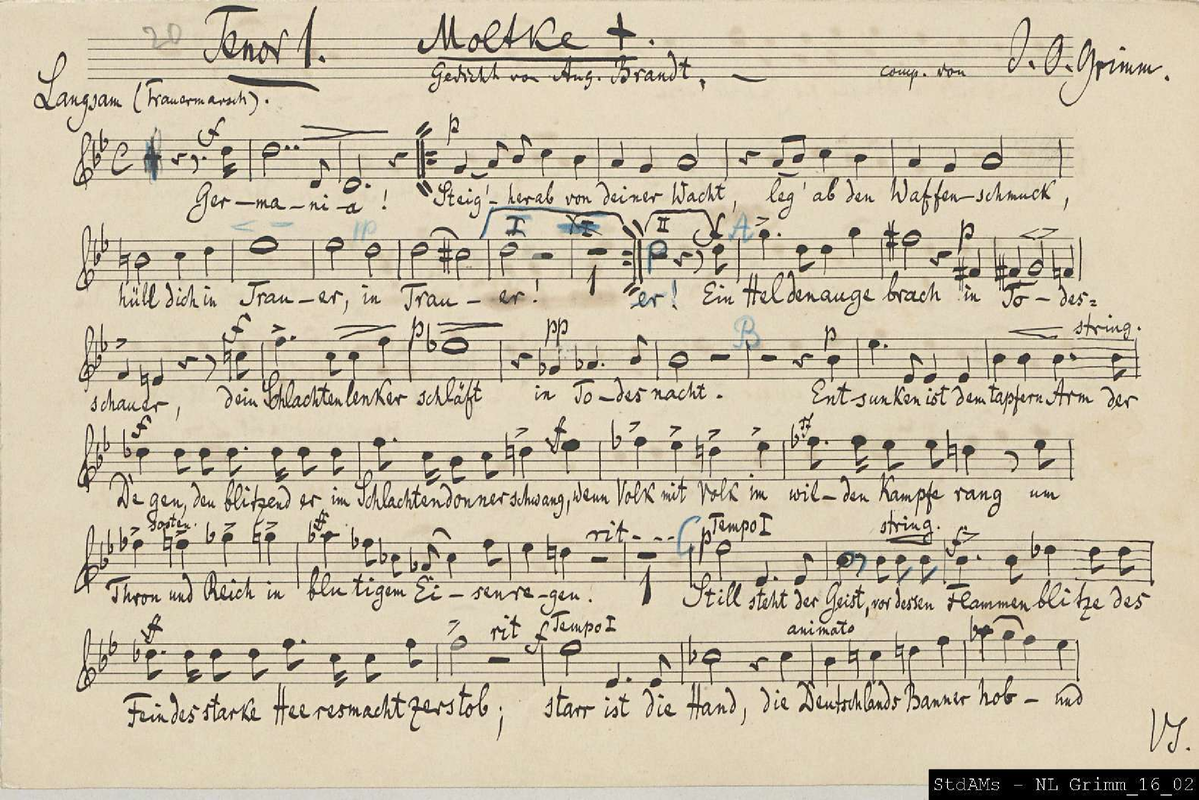 20 Tenor 1. Moltke +. J. O. Grimm.
Gedicht von Aug. Brandt, comp. von
Langsam (Trauermarsch).
f p
Ger-ma-ni-a! Steig' herab von deiner Wacht, leg' ab den Waffen-schmuck,
pp I II f A p
hüll dich in Trau-er, in Trau-er! 1 er! Ein Heldenauge brach in To-des=
f p pp B p string.
schauer, dein Schlachtenlenker schläft in To-des nacht. Entsunken ist dem tapfern Arm der
f f ff
Degen, den blitzend er im Schlachtendonner schwang, wenn Volk mit Volk im wil-den Kampfe rang um
sosten. ff rit---- C p Tempo I string. f
Thron und Reich in blutigem Ei-senre-gen. 1 Still steht der Geist, vor dessen Flammenblitze des
f rit f Tempo I animato
Feindes starke Heeresmacht zerstob; starr ist die Hand, die Deutschlands Banner hob - und
VS.
StdAMs - NL Grimm_16_02